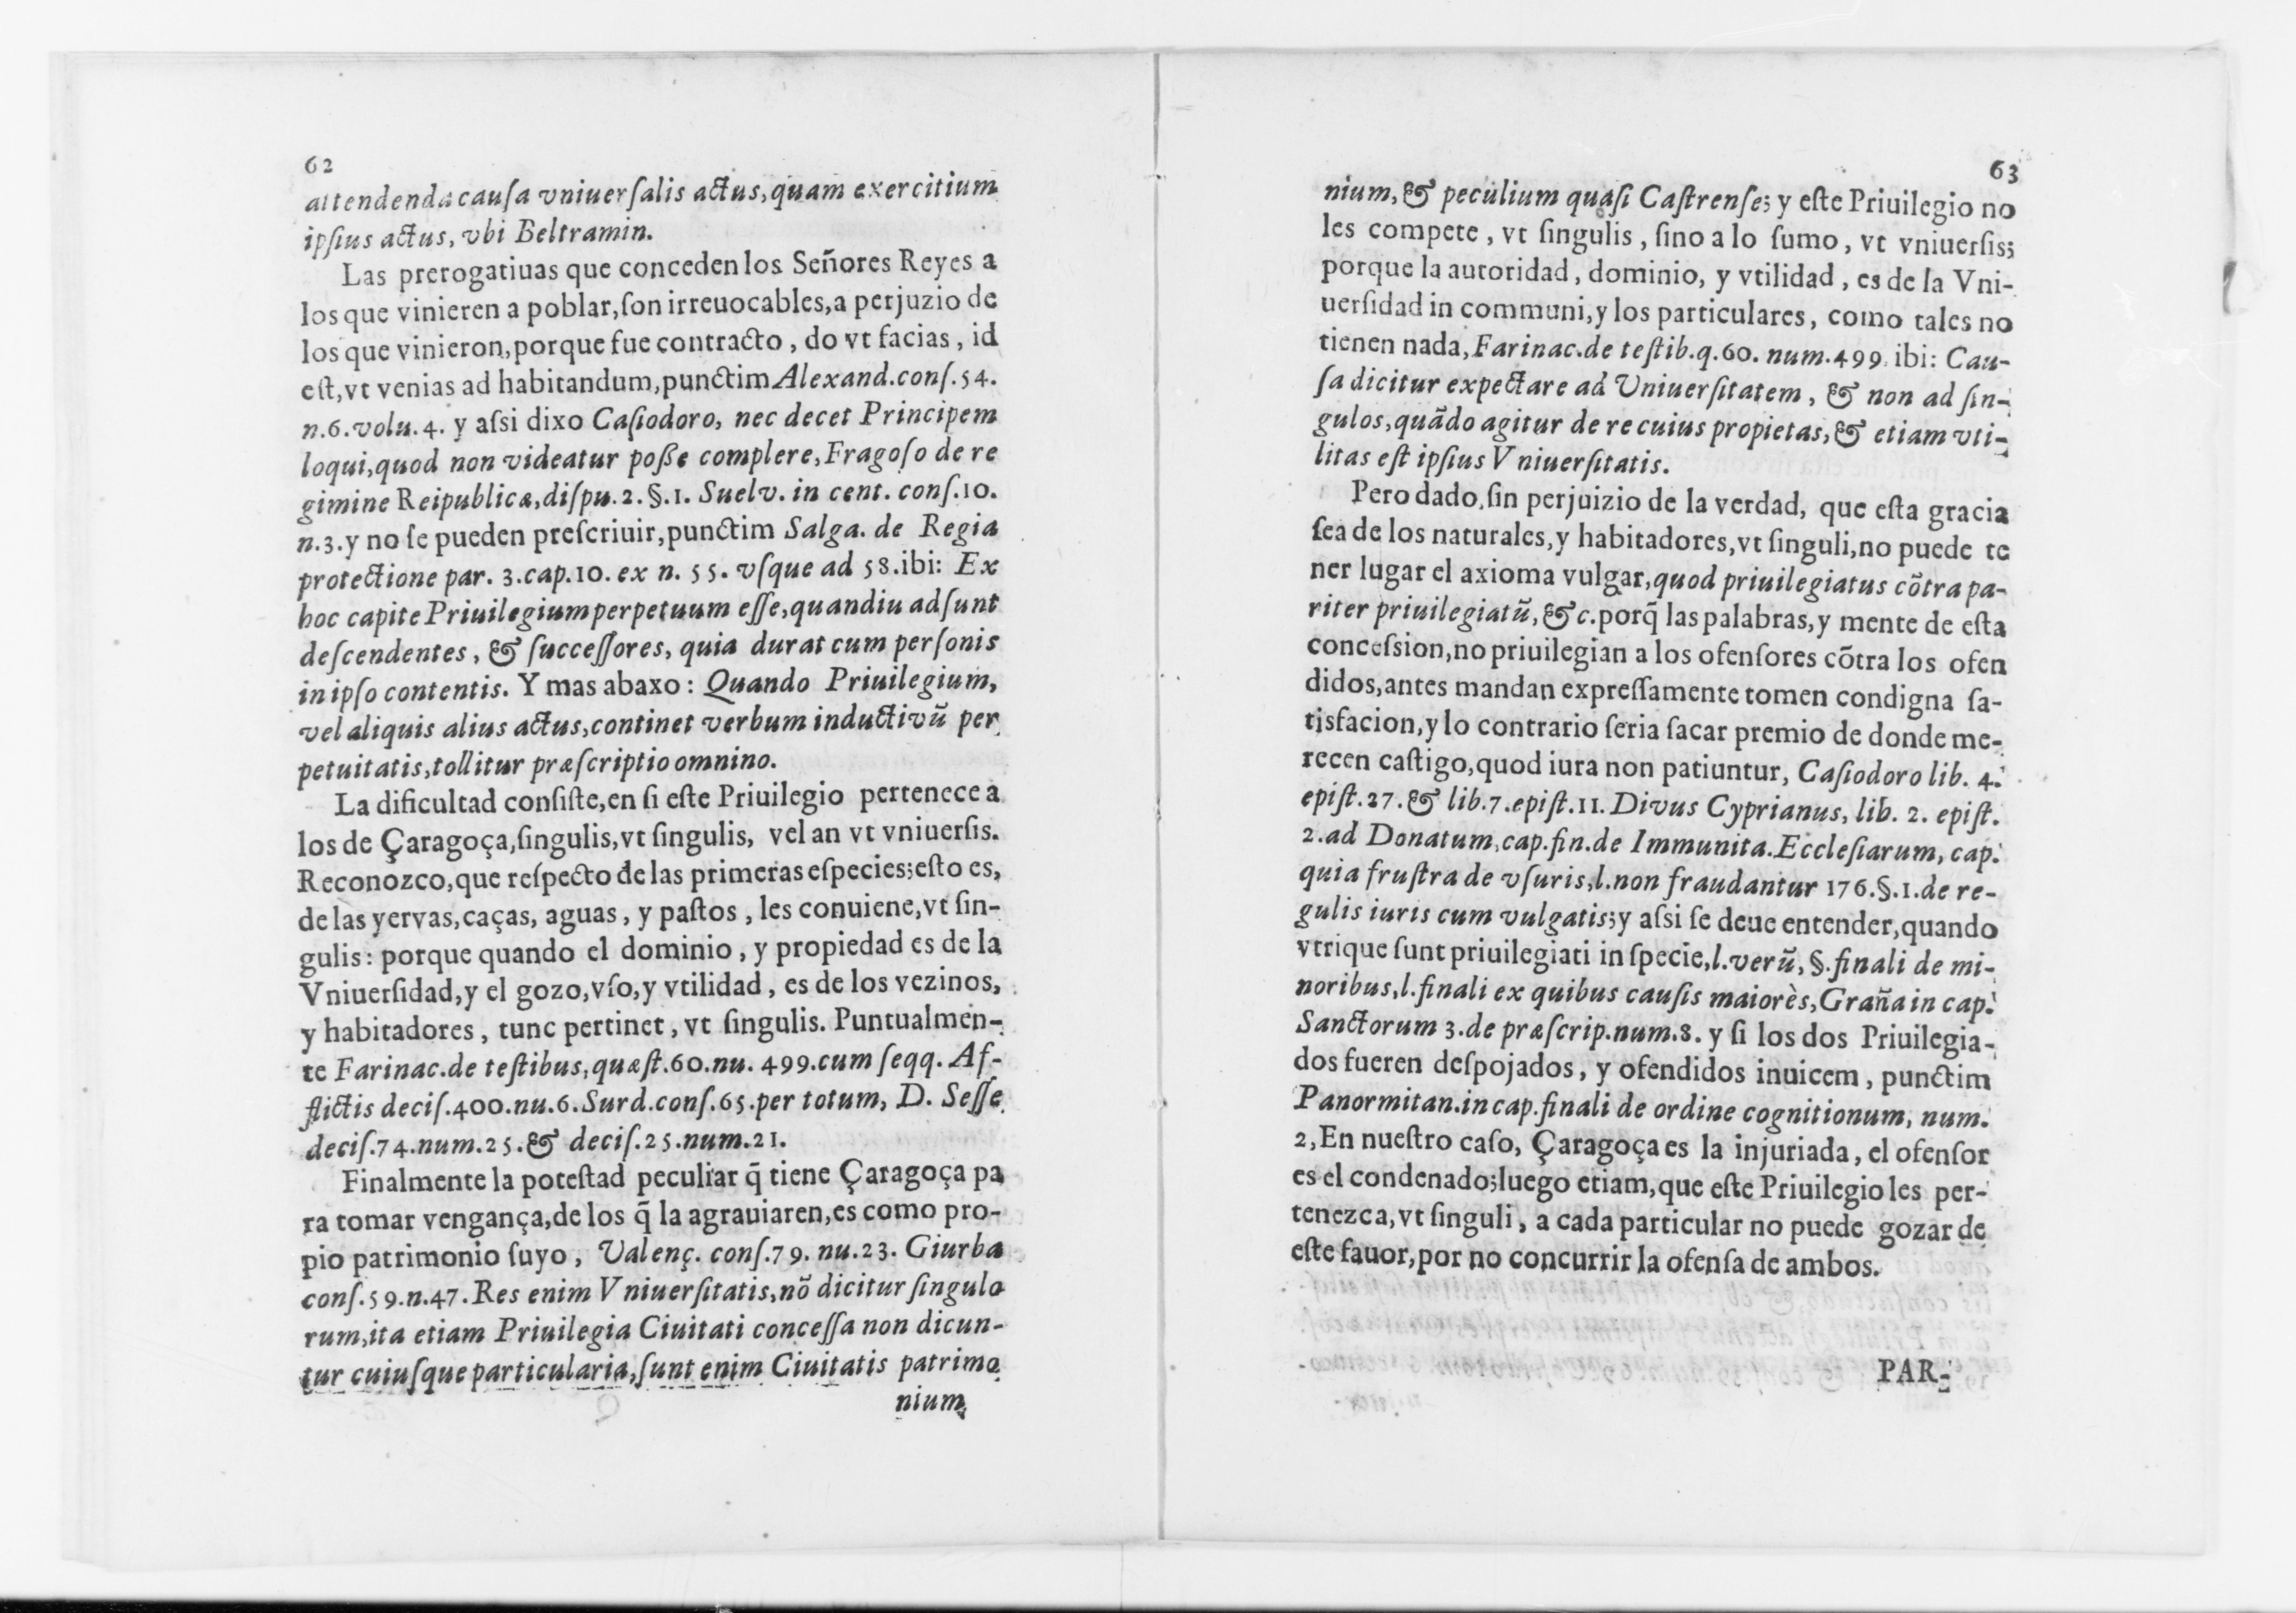 62
attendenda causa vniuersalis actus, quam exercitium
ipsius actus, vbi Beltramin.
Las prerogatiuas que conceden los Señores Reyes a
los que vinieren a poblar, son irreuocables, a perjuzio de
los que vinieron, porque fue contracto, do vt facias, id
est, vt venias ad habitandum, punctim Alexand. cons. 54.
n. 6. volu. 4. y assi dixo Casiodoro, nec decet Principem
loqui, quod non videatur poße complere, Fragoso de re
gimine Reipublicæ, dispu. 2. §. 1. Suelv. in cent. cons. 10.
n. 3. y no se pueden prescriuir, punctim Salga. de Regia
protectione par. 3. cap. 10. ex n. 55. vsque ad 58. ibi: Ex
hoc capite Priuilegium perpetuum esse, quandiu adsunt
descendentes, & successores, quia durat cum personis
in ipso contentis. Y mas abaxo: Quando Priuilegium,
vel aliquis alius actus, continet verbum inductivũ per
petuitatis, tollitur præscriptio omnino.
La dificultad consiste, en si este Priuilegio pertenece a
los de Çaragoça, singulis, vt singulis, vel an vt vniuersis.
Reconozco, que respecto de las primeras especies; esto es,
de las yervas, caças, aguas, y pastos, les conuiene, vt sin-
gulis: porque quando el dominio, y propiedad es de la
Vniuersidad, y el gozo, vso, y vtilidad, es de los vezinos,
y habitadores, tunc pertinet, vt singulis. Puntualmen-
te Farinac. de testibus, quæst. 60. nu. 499. cum seqq. Af-
flictis decis. 400. nu. 6. Surd. cons. 65. per totum, D. Sesse
decis. 74. num. 25. & decis. 25. num. 21.
Finalmente la potestad peculiar q̃ tiene Çaragoça pa
ra tomar vengança, de los q̃ la agrauiaren, es como pro-
pio patrimonio suyo, Valenç. cons. 79. nu. 23. Giurba
cons. 59. n. 47. Res enim Vniuersitatis, nõ dicitur singulo
rum, ita etiam Priuilegia Ciuitati concessa non dicun-
tur cuiusque particularia, sunt enim Ciuitatis patrimo
nium,
63
nium, & peculium quasi Castrense; y este Priuilegio no
les compete, vt singulis, sino a lo sumo, vt vniuersis;
porque la autoridad, dominio, y vtilidad, es de la Vni-
uersidad in communi, y los particulares, como tales no
tienen nada, Farinac. de testib. q. 60. num. 499. ibi: Cau-
sa dicitur expectare ad Vniuersitatem, & non ad sin-
gulos, quãdo agitur de re cuius propietas, & etiam vti-
litas est ipsius Vniuersitatis.
Pero dado, sin perjuizio de la verdad, que esta gracia
sea de los naturales, y habitadores, vt singuli, no puede te
ner lugar el axioma vulgar, quod priuilegiatus cõtra pa-
riter priuilegiatũ, &c. porq̃ las palabras, y mente de esta
concession, no priuilegian a los ofensores cõtra los ofen
didos, antes mandan expressamente tomen condigna sa-
tisfacion, y lo contrario seria sacar premio de donde me-
recen castigo, quod iura non patiuntur, Casiodoro lib. 4.
epist. 27. & lib. 7. epist. 11. Divus Cyprianus, lib. 2. epist.
2. ad Donatum, cap. fin. de Immunita. Ecclesiarum, cap.
quia frustra de vsuris, l. non fraudantur 176. §. 1. de re-
gulis iuris cum vulgatis; y assi se deue entender, quando
vtrique sunt priuilegiati in specie, l. verũ, §. finali de mi-
noribus, l. finali ex quibus causis maiorès, Graña in cap.
Sanctorum 3. de præscrip. num. 8. y si los dos Priuilegia-
dos fueren despojados, y ofendidos inuicem, punctim
Panormitan. in cap. finali de ordine cognitionum, num.
2, En nuestro caso, Çaragoça es la injuriada, el ofensor
es el condenado; luego etiam, que este Priuilegio les per-
tenezca, vt singuli, a cada particular no puede gozar de
este fauor, por no concurrir la ofensa de ambos.
PAR-